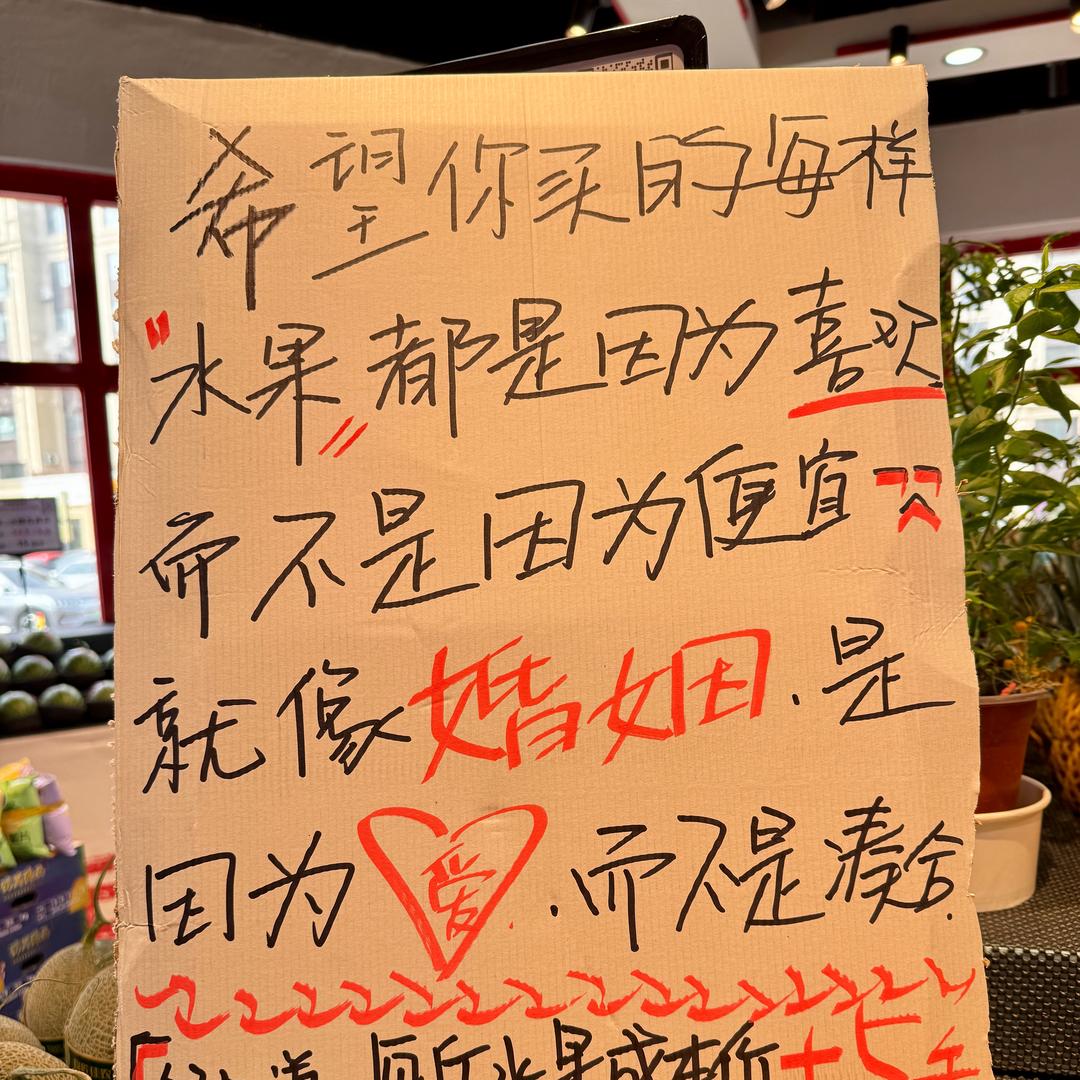 希望你买的每样
"水果"都是因为喜欢
而不是因为便宜
就像婚姻.是
因为爱.而不是凑合.
厕所水果成本价+5